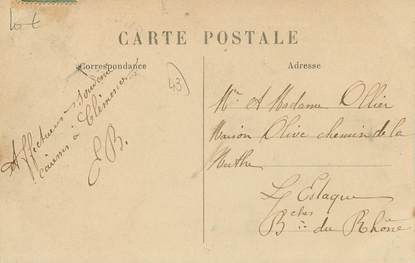 CARTE POSTALE
Correspondance
Adresse
43
Affectueux Souvenir
à Clémence
E B.
Mr et Madame Ollier
Maison Olive chemin de la
L'Estaque
Bches du Rhône